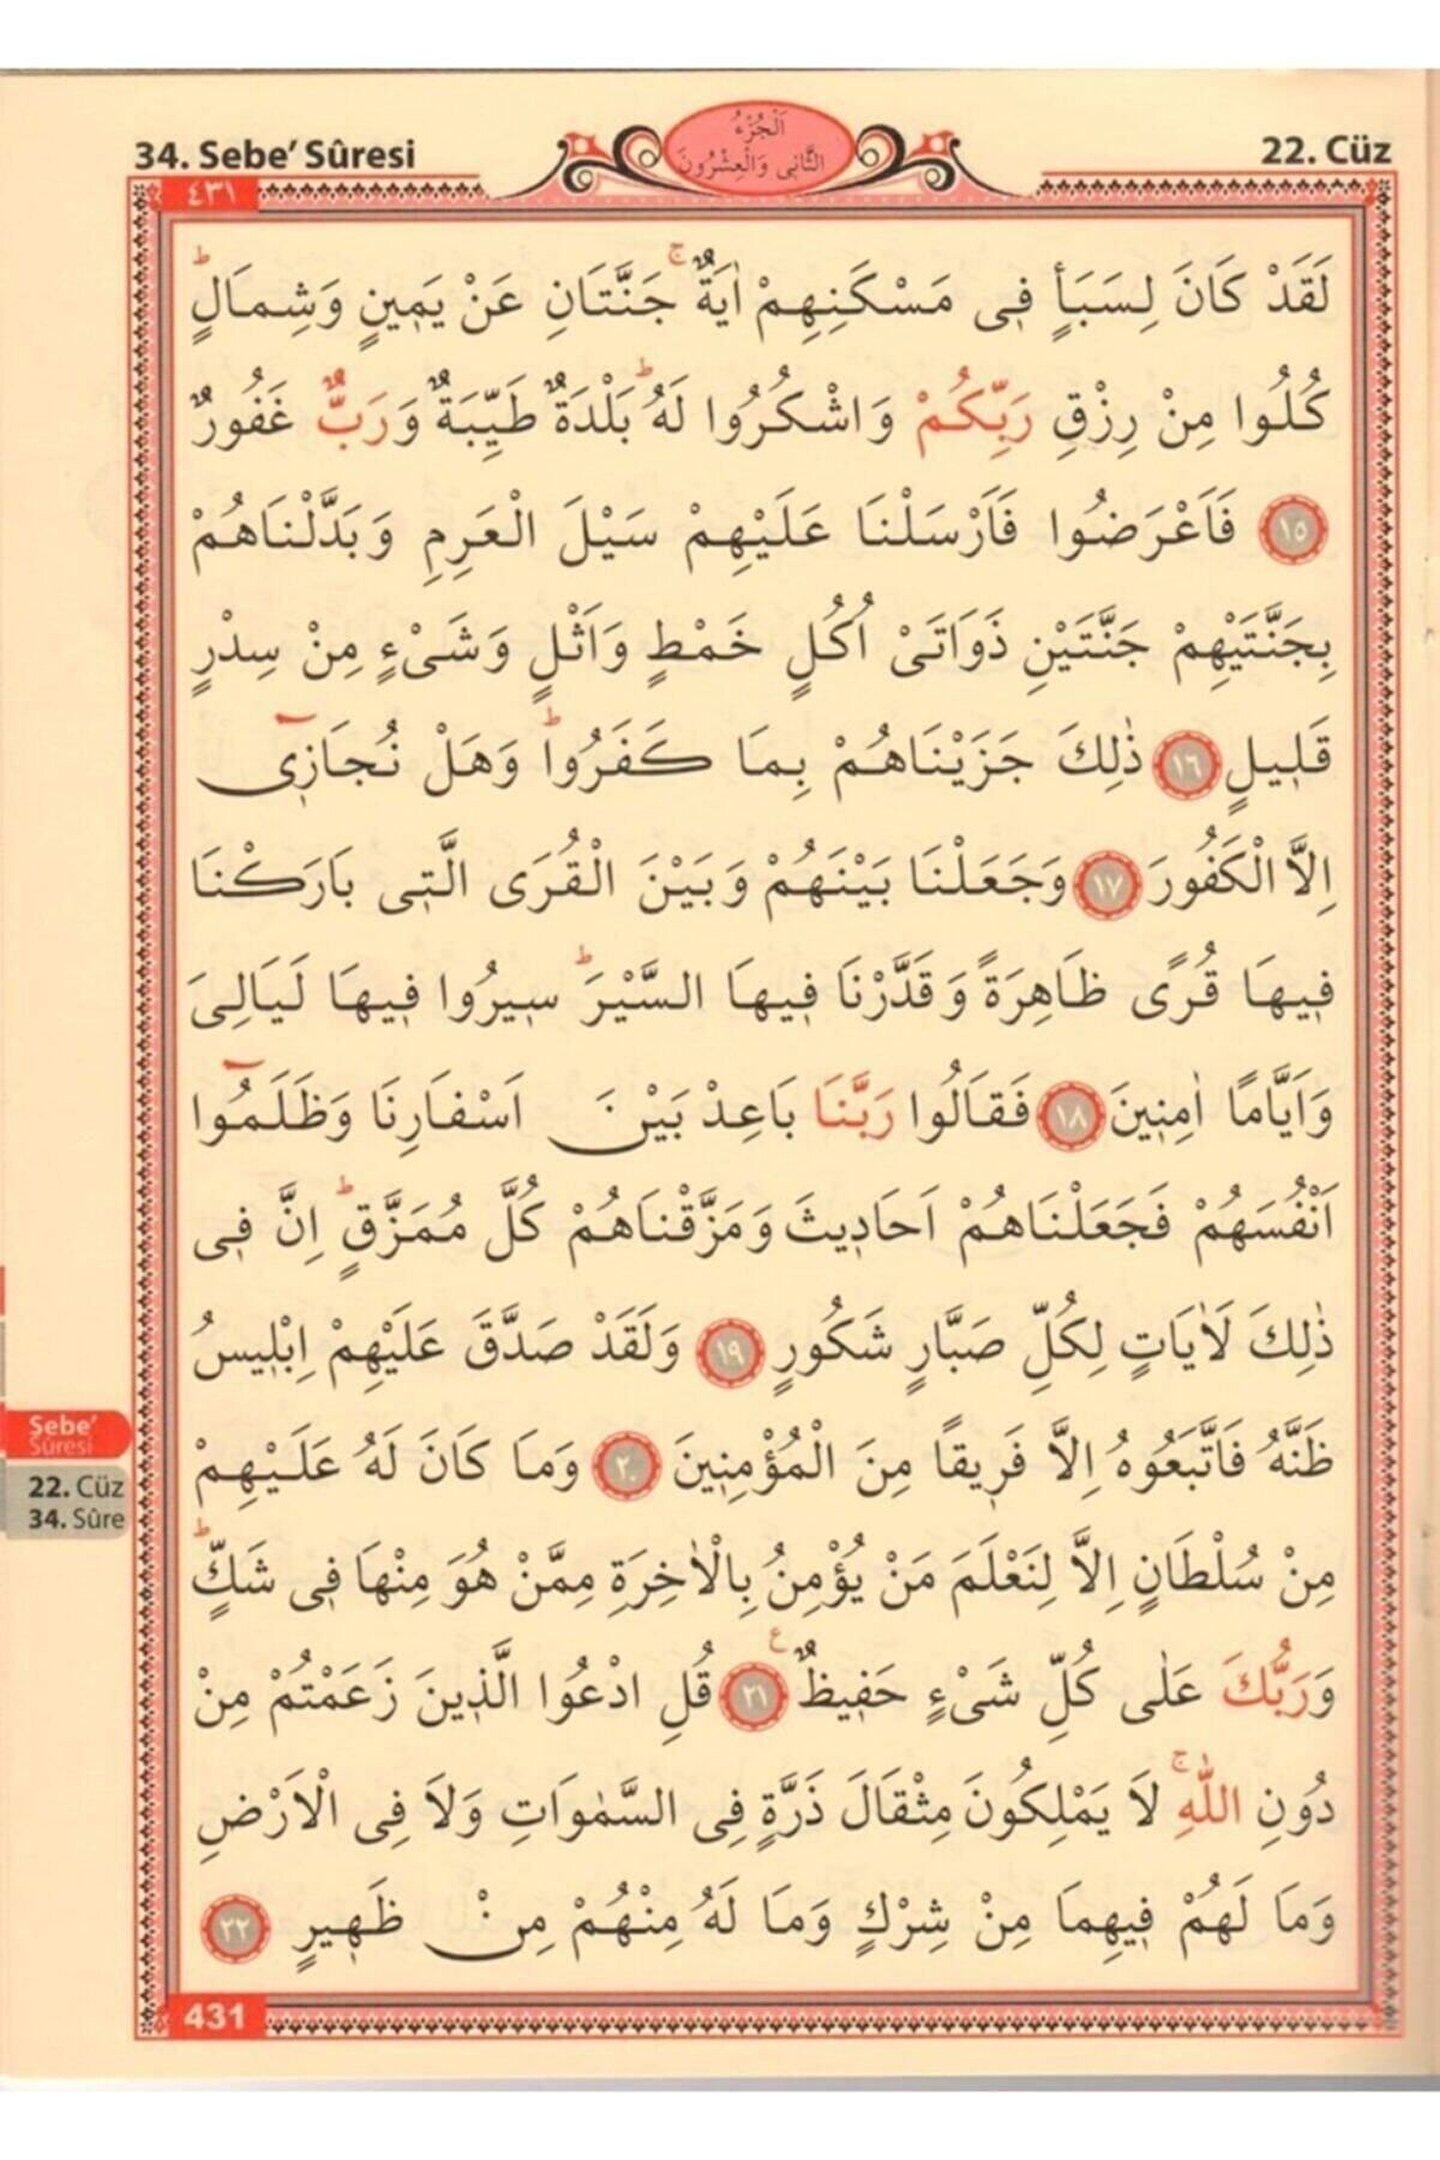 34. Sebe’ Sûresi
اَلْجُزْءُ
الثَّانِى وَالْعِشْرُونَ
22. Cüz
٤٣١
لَقَدْ كَانَ لِسَبَأٍ ف۪ى مَسْكَنِهِمْ اٰيَةٌۚ جَنَّتَانِ عَنْ يَم۪ينٍ وَشِمَالٍۜ
كُلُوا مِنْ رِزْقِ رَبِّكُمْ وَاشْكُرُوا لَهُۜ بَلْدَةٌ طَيِّبَةٌ وَرَبٌّ غَفُورٌ
﴿١٥﴾ فَاَعْرَضُوا فَاَرْسَلْنَا عَلَيْهِمْ سَيْلَ الْعَرِمِ وَبَدَّلْنَاهُمْ
بِجَنَّتَيْهِمْ جَنَّتَيْنِ ذَوَاتَىْ اُكُلٍ خَمْطٍ وَاَثْلٍ وَشَىْءٍ مِنْ سِدْرٍ
قَل۪يلٍ ﴿١٦﴾ ذٰلِكَ جَزَيْنَاهُمْ بِمَا كَفَرُواۜ وَهَلْ نُجَاز۪ٓى
اِلَّا الْكَفُورَ ﴿١٧﴾ وَجَعَلْنَا بَيْنَهُمْ وَبَيْنَ الْقُرَى الَّت۪ى بَارَكْنَا
ف۪يهَا قُرًى ظَاهِرَةً وَقَدَّرْنَا ف۪يهَا السَّيْرَۜ س۪يرُوا ف۪يهَا لَيَالِىَ
وَاَيَّامًا اٰمِن۪ينَ ﴿١٨﴾ فَقَالُوا رَبَّنَا بَاعِدْ بَيْنَ اَسْفَارِنَا وَظَلَمُٓوا
اَنْفُسَهُمْ فَجَعَلْنَاهُمْ اَحَاد۪يثَ وَمَزَّقْنَاهُمْ كُلَّ مُمَزَّقٍۜ اِنَّ ف۪ى
ذٰلِكَ لَاٰيَاتٍ لِكُلِّ صَبَّارٍ شَكُورٍ ﴿١٩﴾ وَلَقَدْ صَدَّقَ عَلَيْهِمْ اِبْل۪يسُ
ظَنَّهُ فَاتَّبَعُوهُ اِلَّا فَر۪يقًا مِنَ الْمُؤْمِن۪ينَ ﴿٢٠﴾ وَمَا كَانَ لَهُ عَلَيْهِمْ
مِنْ سُلْطَانٍ اِلَّا لِنَعْلَمَ مَنْ يُؤْمِنُ بِالْاٰخِرَةِ مِمَّنْ هُوَ مِنْهَا ف۪ى شَكٍّۜ
وَرَبُّكَ عَلٰى كُلِّ شَىْءٍ حَف۪يظٌ ﴿٢١﴾ ع قُلِ ادْعُوا الَّذ۪ينَ زَعَمْتُمْ مِنْ
دُونِ اللّٰهِۚ لَا يَمْلِكُونَ مِثْقَالَ ذَرَّةٍ فِى السَّمٰوَاتِ وَلَا فِى الْاَرْضِ
وَمَا لَهُمْ ف۪يهِمَا مِنْ شِرْكٍ وَمَا لَهُ مِنْهُمْ مِنْ ظَه۪يرٍ ﴿٢٢﴾
Sebe’
Sûresi
22. Cüz
34. Sûre
431